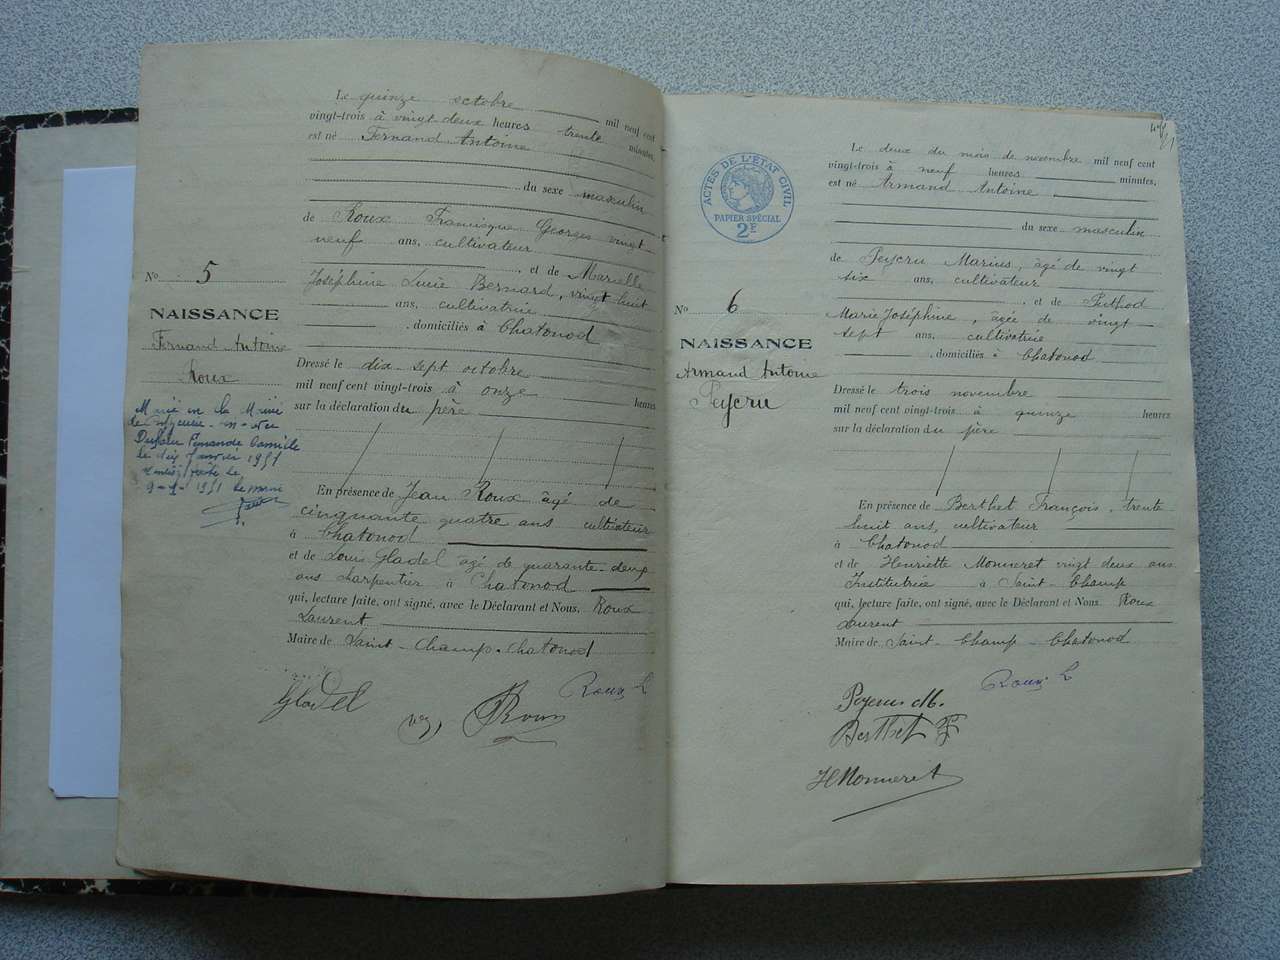 Le quinze octobre mil neuf cent
vingt-trois à vingt deux heures trente minutes,
est né Fernand Antoine
du sexe masculin
de Roux Francisque Georges vingt
neuf ans, cultivateur
, et de Marielle
Joséphine Lucie Bernard, vingt huit
ans, cultivatrice
, domiciliés à Chatonod
No 5
NAISSANCE
Fernand Antoine
Roux
Dressé le dix sept octobre
mil neuf cent vingt-trois à onze heures
sur la déclaration du père
Marié en la Mairie
de
Fernande Camille
le dix janvier 1951
le
9-1-1951 le maire
En présence de Jean Roux âgé de
cinquante quatre ans cultivateur
à Chatonod
et de Louis Gladel âgé de quarante-deux
ans charpentier à Chatonod
qui, lecture faite, ont signé, avec le Déclarant et Nous, Roux
Laurent
Maire de Saint-Champ-Chatonod
Gladel
Roux
Roux L
ACTES DE L'ÉTAT CIVIL
PAPIER SPÉCIAL
2F
Le deux du mois de novembre mil neuf cent
vingt-trois à neuf heures minutes,
est né Armand Antoine
du sexe masculin
de Peycru Marius, âgé de vingt
six ans, cultivateur
, et de Puthod
Marie Joséphine, âgée de vingt
sept ans, cultivatrice
, domiciliés à Chatonod
No 6
NAISSANCE
Armand Antoine
Peycru
Dressé le trois novembre
mil neuf cent vingt-trois à quinze heures
sur la déclaration du père
En présence de Berthet François, trente
huit ans, cultivateur
à Chatonod
et de Henriette Monneret vingt deux ans
Institutrice à Saint-Champ
qui, lecture faite, ont signé, avec le Déclarant et Nous, Roux
Laurent
Maire de Saint-Champ-Chatonod
Roux L
Peycru M.
Berthet F
H Monneret